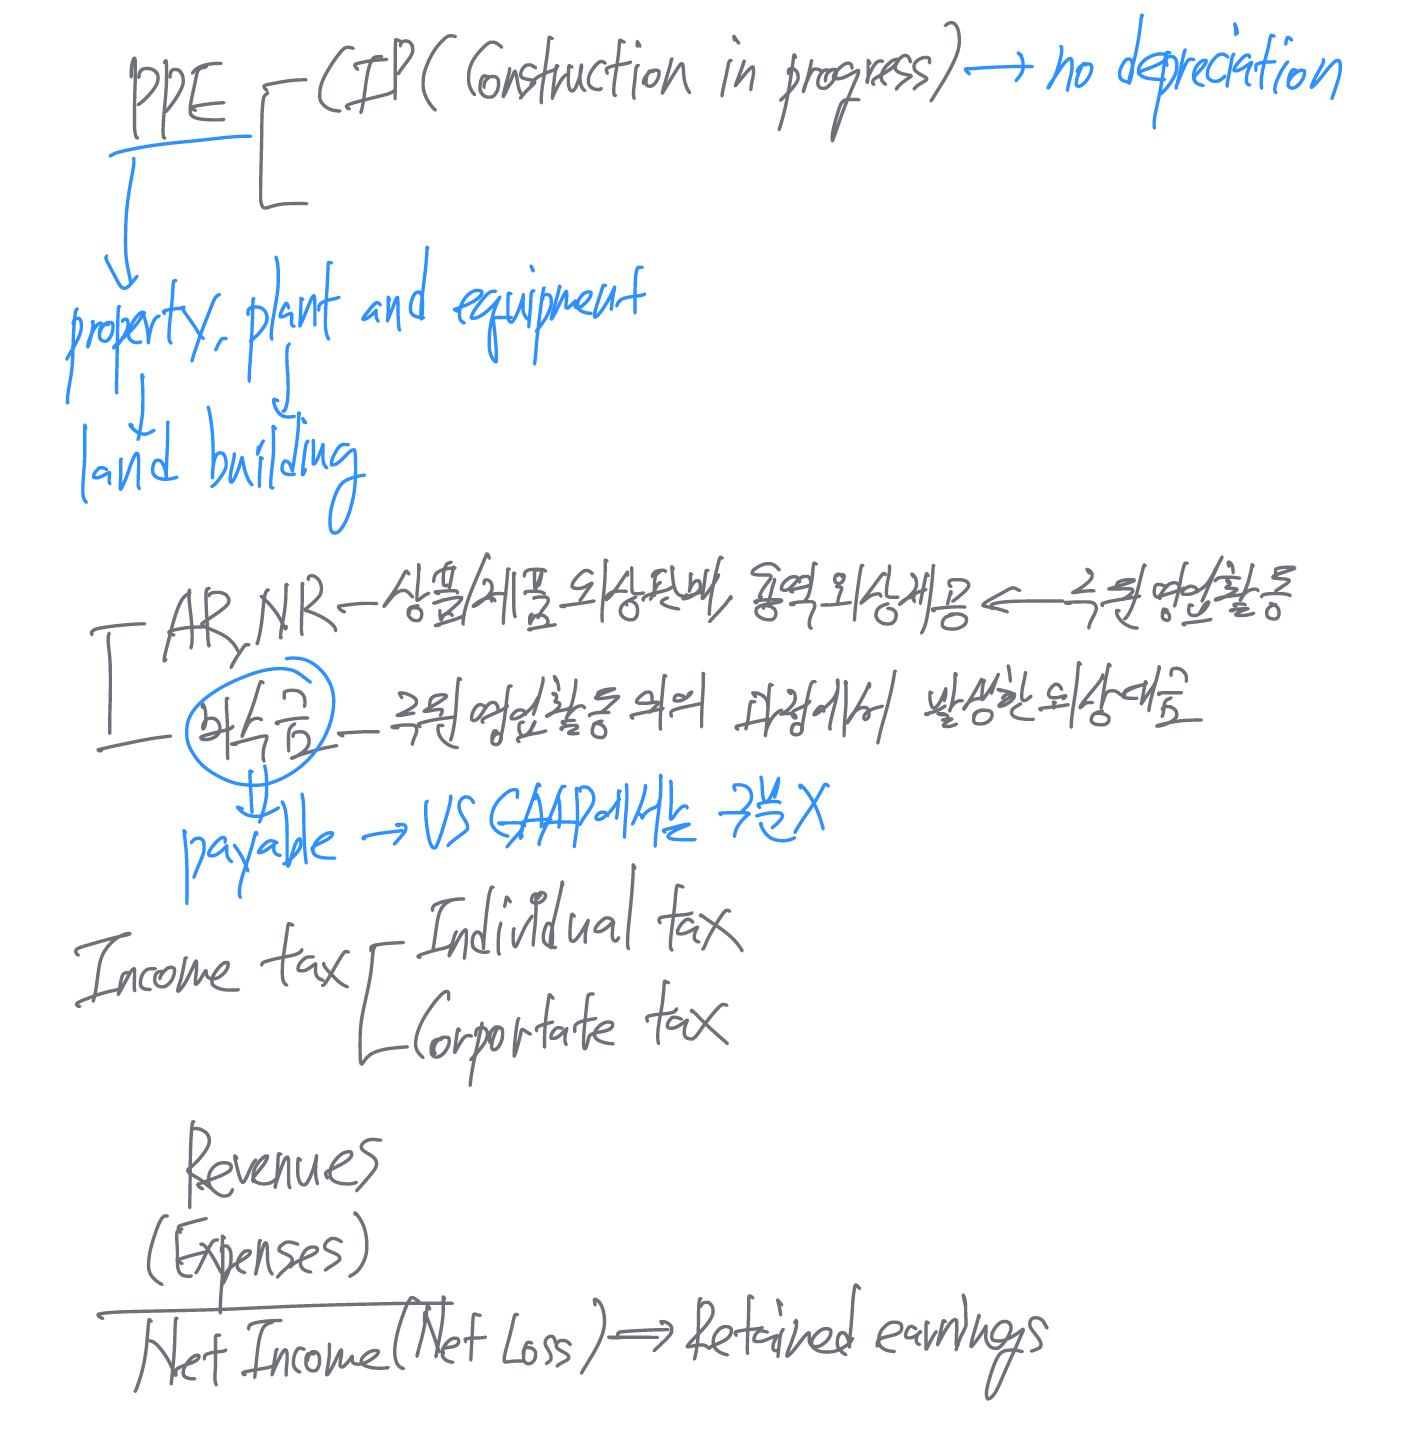 PPE CIP (Construction in progress) → no depreciation
property, plant and equipment
land building
AR, NR - 상품/제품 외상판매, 용역외상제공 ← 주된 영업활동
미수금 - 주된 영업활동 외의 과정에서 발생한 외상대금
payable → US GAAP에서는 구분X
Income tax Individual tax
Corportate tax
Revenues
(Expenses)
Net Income (Net Loss) ⇒ Retained earnings